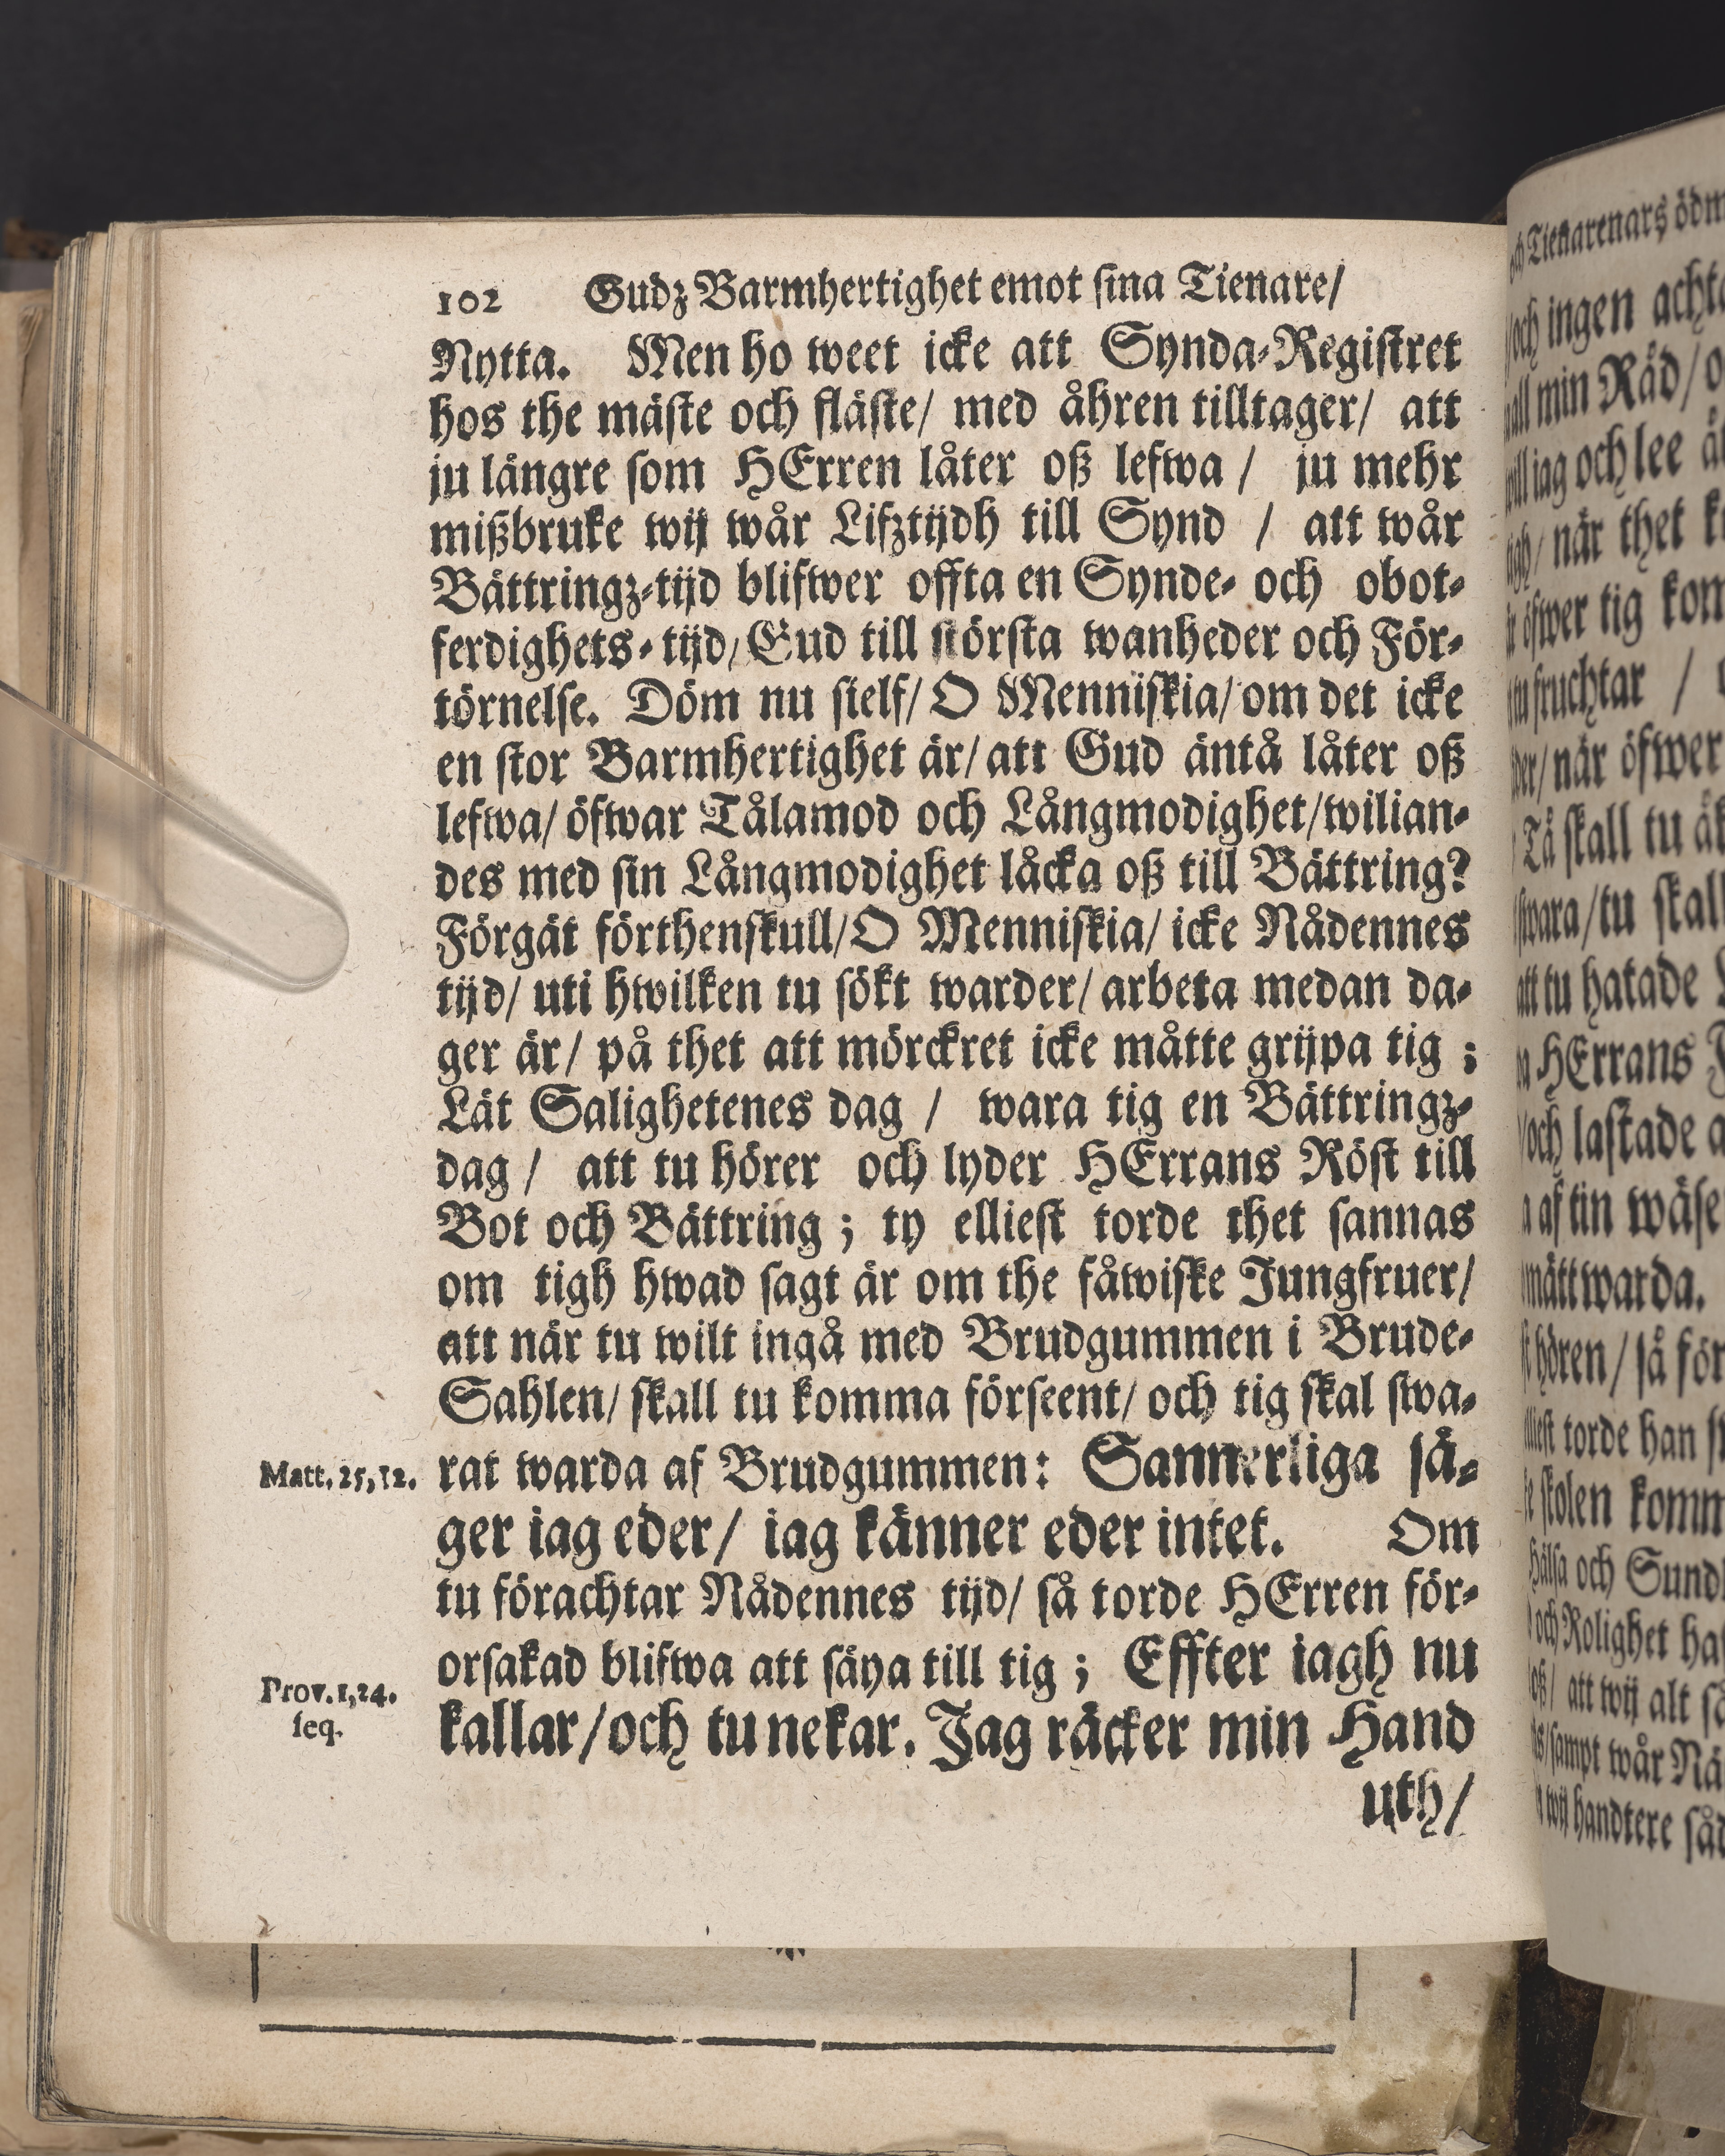 102 Gudz Barmhertighet emot ſina Tienare/
Nytta. Men ho weet icke att Synda-Regiſtret
hos the mäſte och fläſte/ med åhren tilltager/ att
ju längre ſom HErren låter oß lefwa / ju mehr
mißbruke wij wår Lifztijdh till Synd / att wår
Bättringz-tijd blifwer offta en Synde- och obot-
ferdighets-tijd/ Gud till ſtörſta wanheder och För-
törnelſe. Döm nu ſielf/ O Menniſkia/ om det icke
en ſtor Barmhertighet är/ att Gud äntå låter oß
lefwa/ öfwar Tålamod och Långmodighet/ wilian-
des med ſin Långmodighet låcka oß till Bättring?
Förgät förthenſkull/ O Menniſkia/ icke Nådennes
tijd/ uti hwilken tu ſökt warder/ arbeta medan da-
ger är/ på thet att mörckret icke måtte grijpa tig ;
Lät Salighetenes dag / wara tig en Bättringz-
dag / att tu hörer och lyder HErrans Röſt till
Bot och Bättring ; ty ellieſt torde thet ſannas
om tigh hwad ſagt är om the fåwiſke Jungfruer/
att när tu wilt ingå med Brudgummen i Brude-
Sahlen/ ſkall tu komma förſeent/ och tig ſkal ſwa-
Matt. 25, 12. rat warda af Brudgummen: Sannerliga ſä-
ger iag eder/ iag känner eder intet. Om
tu förachtar Nådennes tijd/ ſå torde HErren för-
orſakad blifwa att ſäya till tig ; Effter iagh nu
Prov. 1, 24. kallar/ och tu nekar. Jag räcker min Hand
ſeq.
uth/
och ingen
min Råd/
iag och lee
när thet
öfwer tig
fruchtar /
när öfwer
Tå ſkall tu
tu ſkall
tu hatade
HErrans
och laſtade
af tin
warda.
hören/ ſå
torde han
ſkolen
och
och Rolighet
att wij alt
ſampt wår
wij handtere